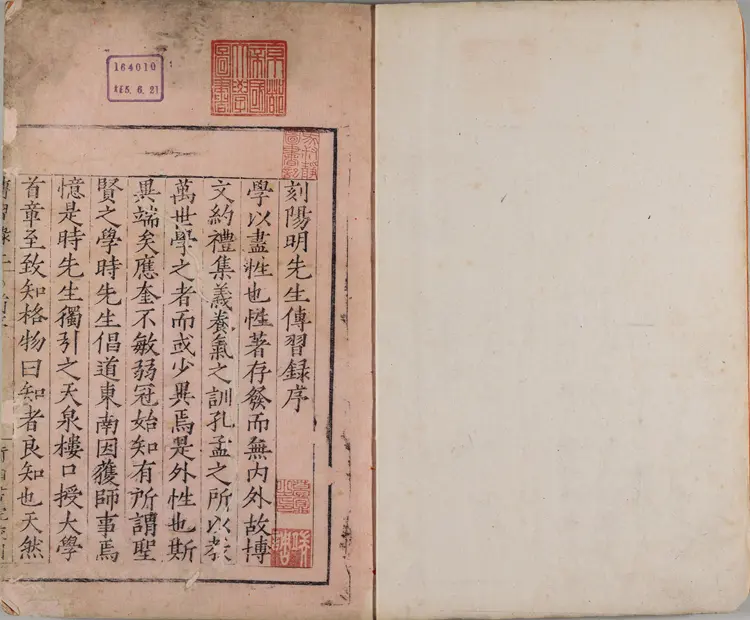 164010
大正5.6.21
京都帝國大學圖書
刻陽明先生傳習録序
學以盡性也性著存發而無内外故博
文約禮集義養氣之訓孔孟之所以教
萬世學之者而或少異焉是外性也斯
異端矣應奎不敏弱冠始知有所謂聖
賢之學時先生倡道東南因獲師事焉
憶是時先生獨引之天泉樓口授大學
首章至致知格物曰知者良知也天然